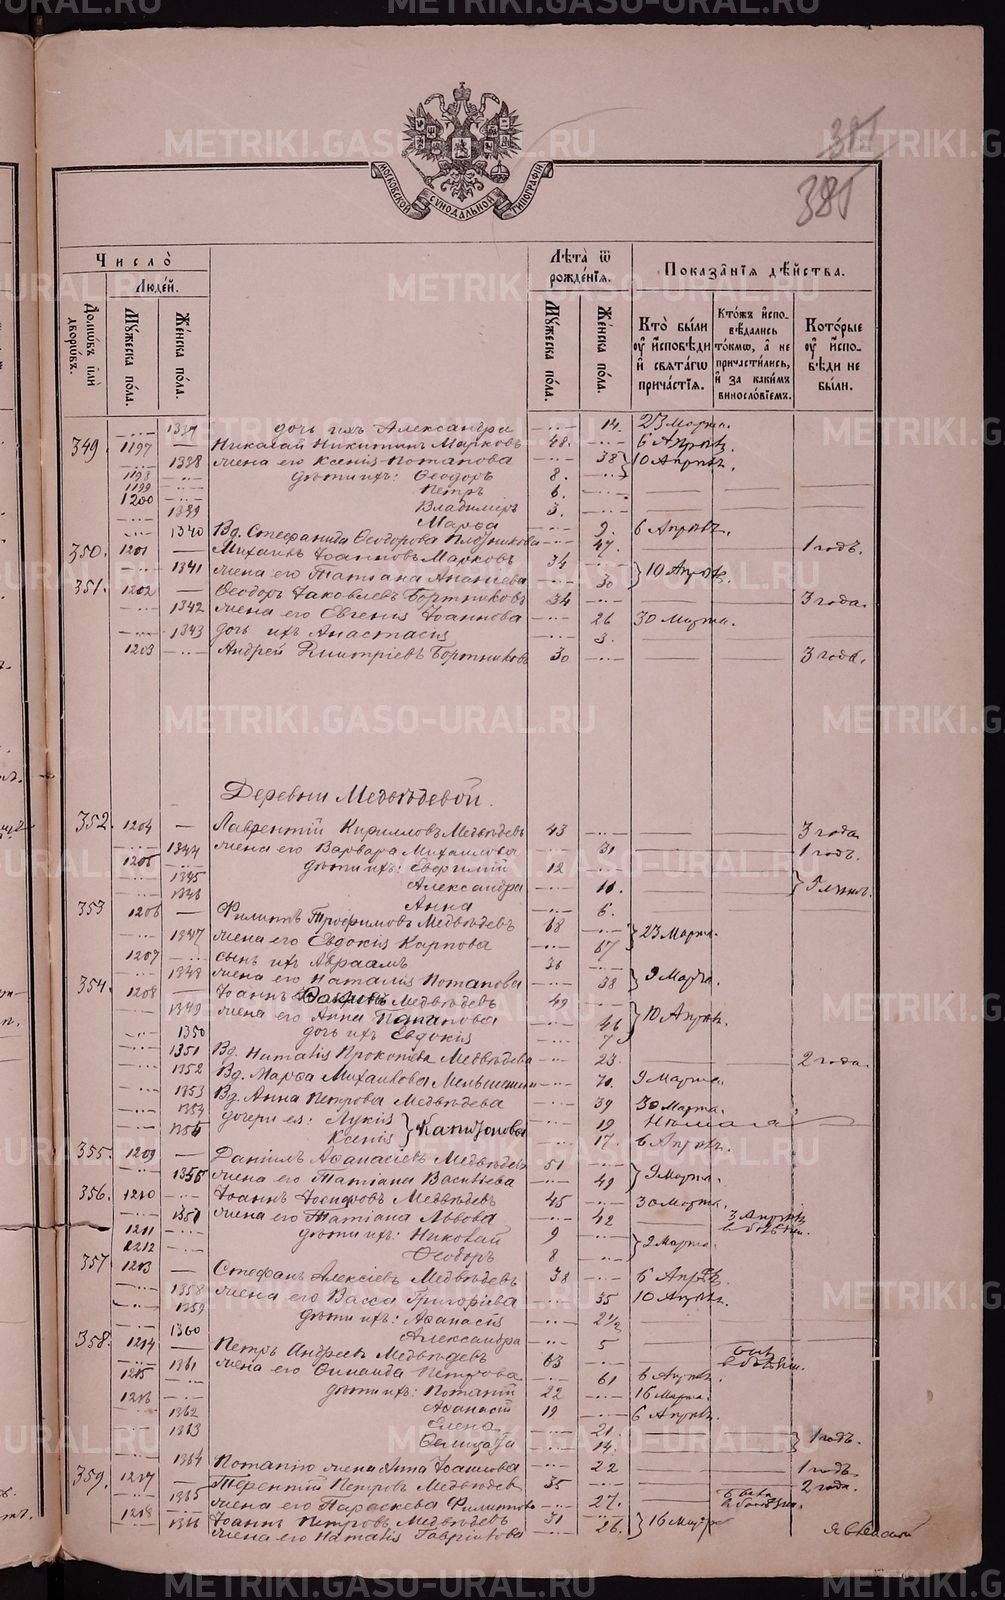 METRIKI.GASO-URAL.RU
МОСКОВСКОЙ СУНОДАЛЬНОЙ ТИПОГРАФІИ
381
Число̀
Людей.
Домѡвъ илѝ дворѡвъ.
Мꙋжеска пола.
Женска пола.
Лѣта ѿ рожденїѧ.
Мꙋжеска пола.
Женска пола.
Показанїѧ дѣйства.
Кто̀ были оу҆ исповѣди и свѧтагѡ причастїѧ.
Ктожъ исповѣдались токмѡ, а не причастились, и за какимъ винословїемъ.
Которые оу҆ исповѣди не были.
1337 дочь ихъ Александра 14. 23 Марта.
349. 1197 Николай Никитинъ Марковъ 48. 6 Апрѣл.
1338 жена его Ксенія Потапова 38 10 Апрѣл.
1198 дѣти ихъ: Ѳеодоръ 8.
1199 Петръ 6.
1200 Владиміръ 3.
1339 Марѳа 9.
1340 Вд. Стефанида Ѳеодорова Плотникова 47. 6 Апрѣл.
350. 1201 Михаилъ Іоанновъ Марковъ 34 1 годъ.
1341 жена его Татіана Ананіева 30 10 Апрѣл.
351. 1202 Ѳеодоръ Іаковлевъ Бортниковъ 34 3 года.
1342 жена его Евгенія Іоаннова 26 30 Марта.
1343 дочь ихъ Анастасія 3.
1203 Андрей Дмитріевъ Бортниковъ 30 3 года.
Деревни Медвѣдевой.
352. 1204 Лаврентій Кирилловъ Медвѣдевъ 43 3 года
1344 жена его Варвара Михаилова 31 1 годъ.
1205 дѣти ихъ: Евфимій 12
1345 Александра 10.
1346 Анна 6.
353 1206 Филиппъ Трофимовъ Медвѣдевъ 68
1347 жена его Евдокія Карпова 67 23 Марта.
1207 сынъ ихъ Авраамъ 36
1348 жена его Наталія Потапова 38 9 Марта.
354. 1208 Іоаннъ Медвѣдевъ 49
1349 жена его Анна 46 10 Апрѣл.
1350 дочь ихъ Евдокія 7
1351 Вд. Наталія Прокопіева Медвѣдева 23. 2 года.
1352 Вд. Марѳа Михаилова 70. 9 Марта.
1353 Вд. Анна Петрова Медвѣдева 39 30 Марта.
1354 дочери ея: Лукія 19
1355 Ксенія Капитоновы 17. 6 Апрѣл.
355. 1209 Даніилъ Аѳанасіевъ Медвѣдевъ 51
1356 жена его Татіана Васильева 49 9 Марта.
356. 1210 Іоаннъ Іосифовъ Медвѣдевъ 45 30 Марта.
1357 жена его Татіана Львова 42 3 Апрѣл.
1211 дѣти ихъ: Николай 9
1212 Ѳеодоръ 8 9 Марта.
357. 1213 Стефанъ Алексіевъ Медвѣдевъ 38 6 Апрѣл.
1358 жена его Васса Григоріева 35 10 Апрѣл.
1359 дѣти ихъ: Аѳанасія 2½
1360 Александра 5
358. 1214 Петръ Андреевъ Медвѣдевъ 63
1361 жена его Петрова 61 6 Апрѣл.
1215 дѣти ихъ: Потапій 22 16 Марта.
1216 Аѳанасій 19 6 Апрѣл.
1362 Елена 21
1363 14. 1 годъ.
1364 Потапію жена Анна Іоаннова 22 1 годъ
359. 1217 Терентій Петровъ Медвѣдевъ 35 2 года.
1365 жена его Параскева Филиппова 27.
1218 Іоаннъ Петровъ Медвѣдевъ 31
1366 жена его Наталія Гавріилова 26. 16 Марта